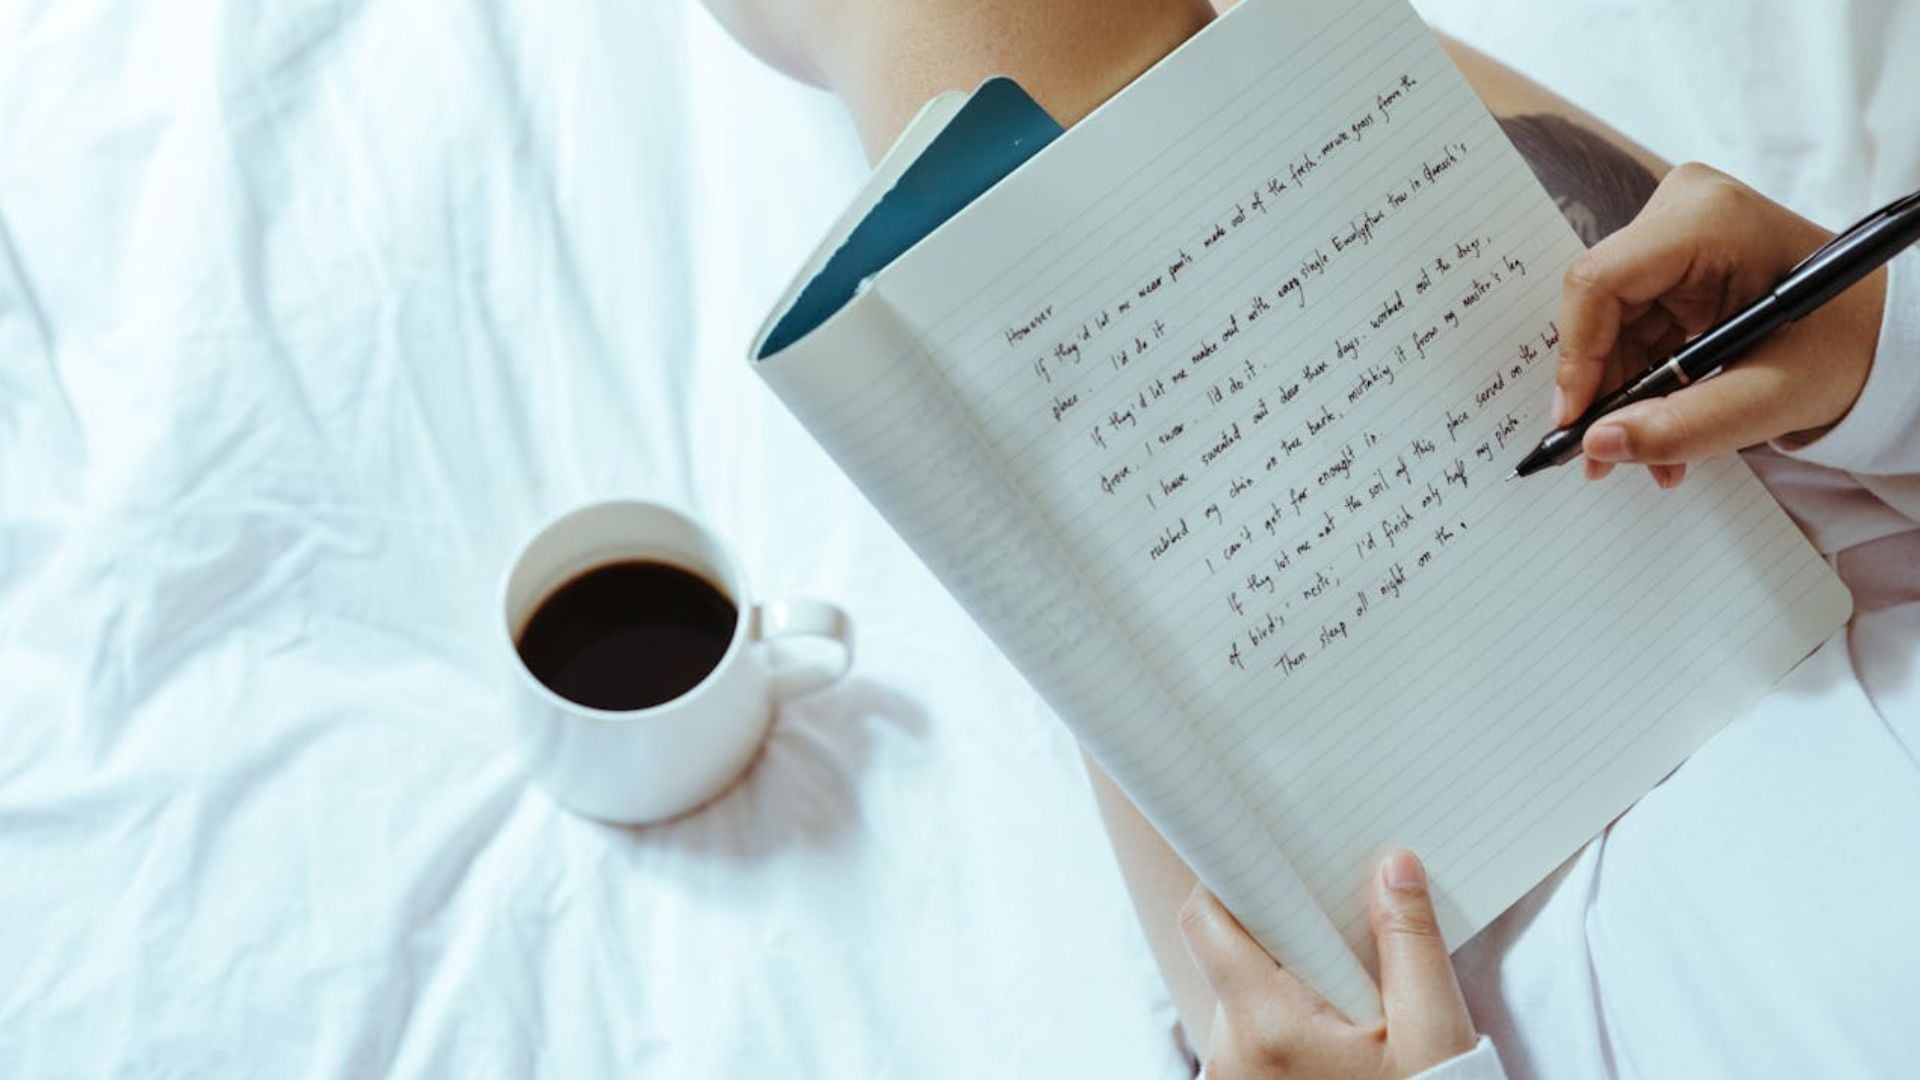 However
If they'd let me wear pants made out of the fresh-mown grass from the
place. I'd do it.
If they'd let me make out with every single Eucalyptus tree in Ganesh's
Grove, I swear. I'd do it.
I have sweated out dew these days, worked out the dregs,
rubbed my chin on tree bark, mistaking it from my master's leg
I can't get far enought in.
If they let me eat the soil of this place served on the bed
of bird's nests; I'd finish only half my plate.
Then sleep all night on the